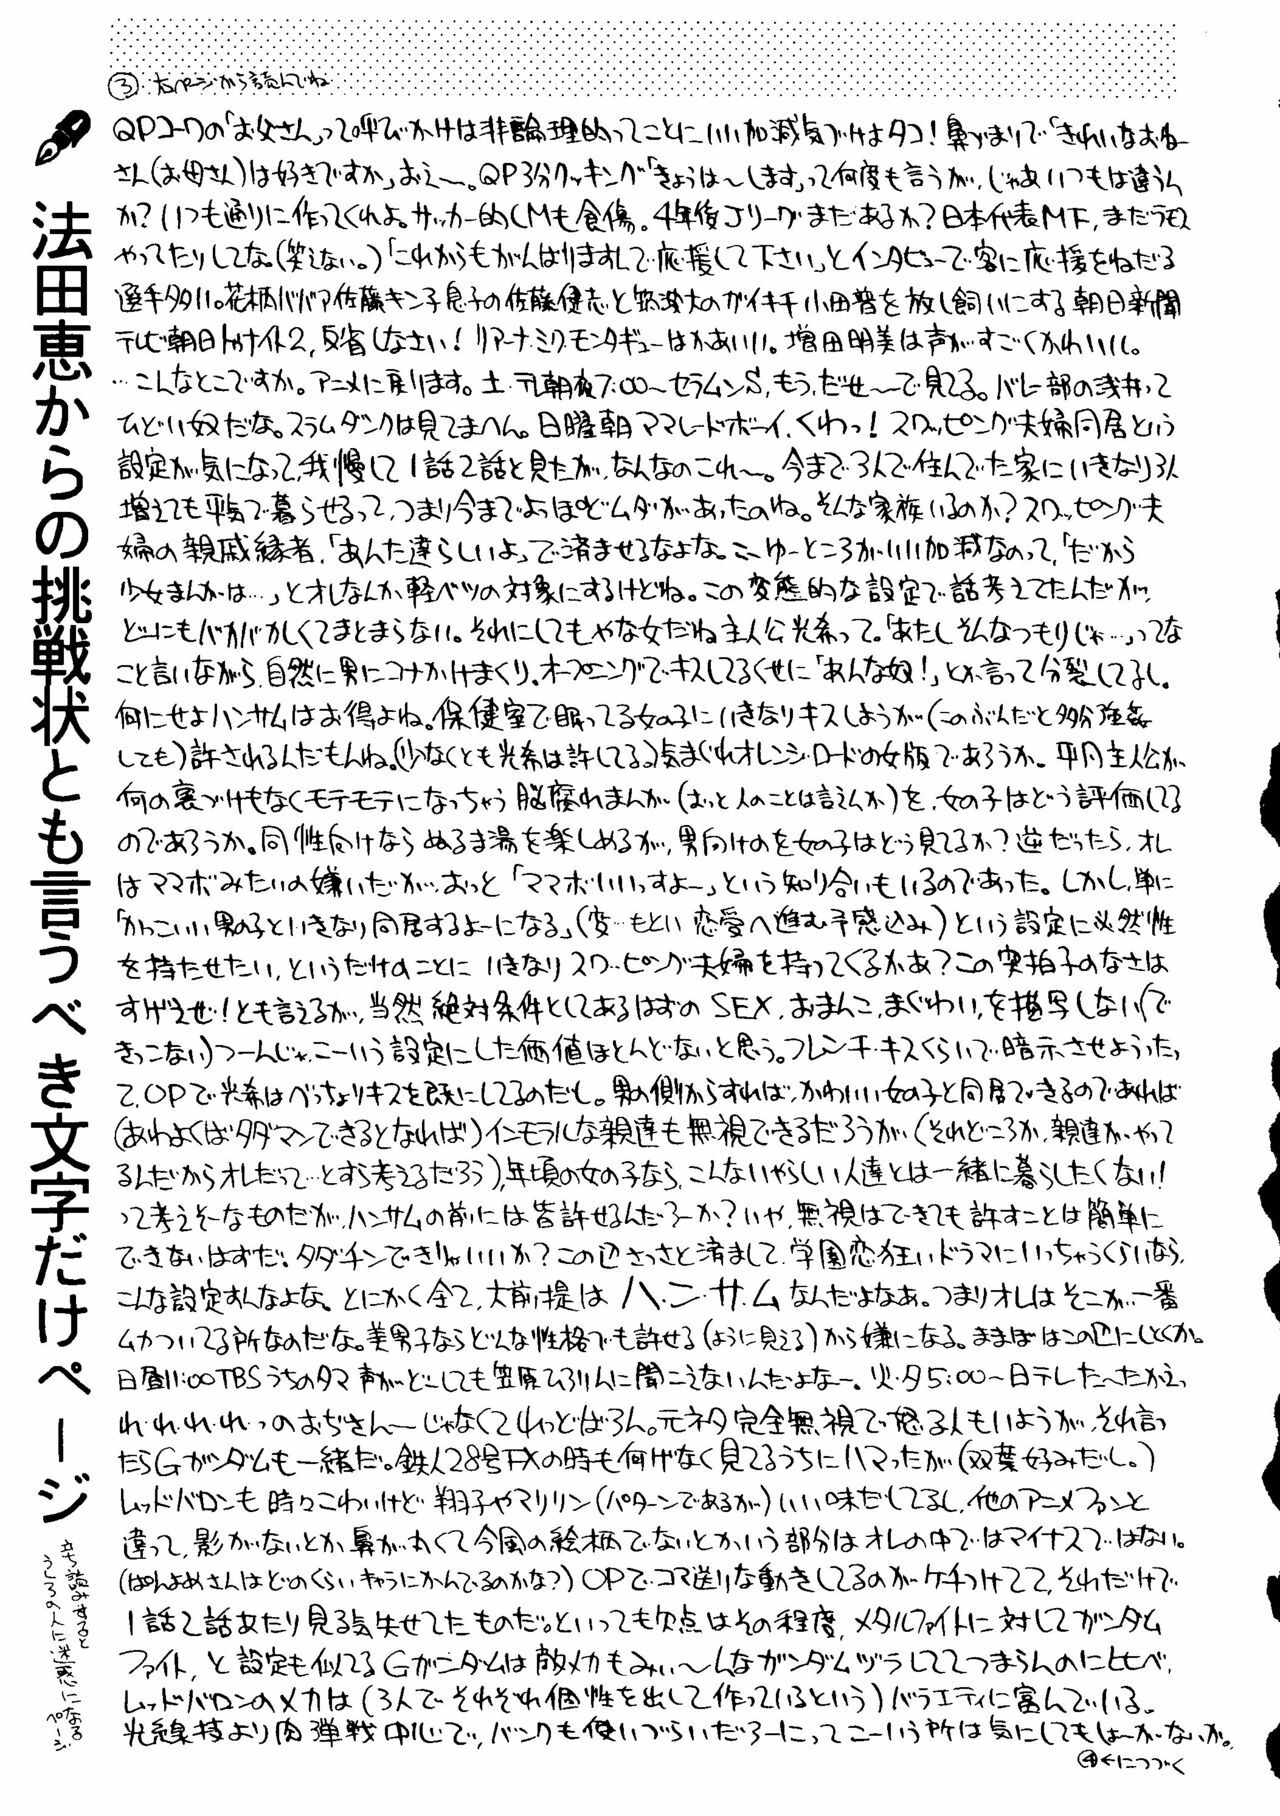 ③ 右ページから読んでね
法田恵からの挑戦状とも言うべき文字だけページ
立ち読みすると
うしろの人に迷惑になる
ページ
QPコーワの「お父さん」って呼びかけは非論理的ってことにいい加減気づけよタコ!鼻づまりで「きれいなおねー
さん(お母さん)は好きですか」おえ〜。QP3分クッキング「きょうは〜します」って何度も言うが、じゃあいつもは違うん
か?いつも通りに作ってくれよ。サッカー的CMも食傷。4年後Jリーグまだあるか?日本代表MF、まだラモス
やってたりしてな。(笑えない。)「これからもがんばりますんで応援して下さい」とインタビューで客に応援をねだる
選手多い。花柄ババア佐藤キン子息子の佐藤健志と筑波大のガイキチ小田晋を放し飼いにする朝日新聞
テレビ朝日トゥナイト2、反省しなさい!リアーナ・ミク・モンタギューはかあいい。増田明美は声がすごくかわいい。
…こんなとこですか。アニメに戻ります。土・テレ朝夜7:00〜セラムンS、もう、だせ〜で見てる。バレー部の浅井って
ひどい奴だな。スラムダンクは見てまへん。日曜朝ママレードボーイ、くわっ!スワッピング夫婦同居という
設定が気になって、我慢して1話2話と見たが、なんなのこれ〜。今まで3人で住んでた家にいきなり3人
増えても平気で暮らせるって、つまり今までよっぽどムダがあったのね。そんな家族いるのか?スワッピング夫
婦の親戚縁者、「あんた達らしいよ」で済ませるなよな。こーゆーところがいい加減なのって、「だから
少女まんがは…」とオレなんか軽ベツの対象にするけどね。この変態的な設定で話考えてたんだが、
どーにもバカバカしくてまとまらない。それにしてもやな女だね主人公光希って。「あたしそんなつもりじゃ…」ってな
こと言いながら、自然に男にコナかけまくり。オープニングでキスしてるくせに「あんな奴!」とか言って分裂してるし。
何にせよハンサムはお得よね。保健室で眠ってる女の子にいきなりキスしようが(このぶんだと多分強姦
しても)許されるんだもんね。(少なくとも光希は許してる。)気まぐれオレンジ・ロードの女版であろうか。平凡主人公が、
何の裏づけもなくモテモテになっちゃう脳腐れまんが(おっと人のことは言えんか)を、女の子はどう評価してる
のであろうか。同性向けならぬるま湯を楽しめるが、男向けのを女の子はどう見てるか?逆だったら、オレ
はママボみたいの嫌いだが、おっと「ママボいいっすよー」という知り合いもいるのであった。しかし、単に
「かっこいい男の子といきなり同居するよーになる」(変…もとい恋愛へ進む予感込み)という設定に必然性
を持たせたい、というだけのことにいきなりスワッピング夫婦を持ってくるかあ?この突拍子のなさは
すげえぜ!とも言えるが、当然絶対条件としてあるはずのSEX、おまんこ、まぐわい、を描写しない(で
きっこない)つーんじゃ、こーいう設定にした価値ほとんどないと思う。フレンチ・キスくらいで暗示させようったっ
て、OPで光希はべっちょりキスを既にしてるのだし。男の側からすれば、かわいい女の子と同居できるのであれば
(あわよくばタダマンできるとなれば)インモラルな親達も無視できるだろうが、(それどころか、親達がやって
るんだからオレだって…とすら考えるだろう)、年頃の女の子なら、こんないやらしい人達とは一緒に暮らしたくない!
って考えそーなものだが、ハンサムの前には皆許せるんだろーか?いや、無視はできても許すことは簡単に
できないはずだ。タダチンできりゃいいか?この辺さっさと済まして、学園恋狂いドラマにいっちゃうくらいなら、
こんな設定すんなよな。とにかく全て、大前提はハ・ン・サ・ムなんだよなあ。つまりオレはそこが一番
ムカついてる所なのだな。美男子ならどんな性格でも許せる(ように見える)から嫌になる。ままぼはこの辺にしとくか。
日昼11:00TBSうちのタマ声がどーしても笠原ひろりんに聞こえないんだよなー。火・夕5:00〜日テレた〜たかえっ
れ・れ・れ・れ・っのおぢさん〜じゃなくてれっどばろん。元ネタ完全無視で怒る人もいようが、それ言っ
たらGガンダムも一緒だ。鉄人28号FXの時も何げなく見てるうちにハマったが(双葉好みだし。)
レッドバロンも時々こわいけど翔子やマリリン(パターンであるが)いい味だしてるし、他のアニメファンと
違って、影がないとか鼻がまるくて今風の絵柄でないとかいう部分はオレの中ではマイナスではない。
(ぱんよめさんはどのくらいキャラにかんでるのかな?)OPでコマ送りな動きしてるのがケチつけてて、それだけで
1話2話あたり見る気失せてたものだ。といっても欠点はその程度、メタルファイトに対してガンダム
ファイト、と設定も似てるGガンダムは敵メカもみぃ〜んなガンダムヅラしててつまらんのに比べ、
レッドバロンのメカは(3人でそれぞれ個性を出して作っているという)バラエティに富んでいる。
光線技より肉弾戦中心で、バンクも使いづらいだろーにってこーいう所は気にしてもしょーがないか。
④←につづく